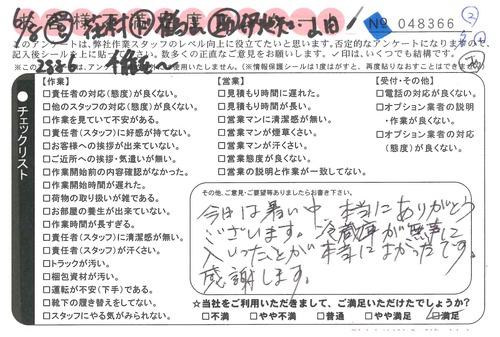 様 度 No 048366
このアンケートは、弊社作業スタッフのレベル向上に役立てたいと思います。否定的なアンケートになりますので、
記入後シールを上に貼って
数多くの正直なご意見をお願いします。✓印は、いくつでも結構です。
(※情報保護シールは1度はがすと、再度貼りなおすことはできません)
チェックリスト
【作業】
□責任者の対応(態度)が良くない。
□他のスタッフの対応(態度)が良くない。
□作業を見ていて不安がある。
□責任者(スタッフ)に好感が持てない。
□お客様への挨拶が出来ていない。
□ご近所への挨拶・気遣いが無い。
□作業開始前の内容確認がなかった。
□作業開始時間が遅れた。
□荷物の取り扱いが雑である。
□お部屋の養生が出来ていない。
□作業時間が長すぎる。
□責任者(スタッフ)に清潔感が無い。
□責任者(スタッフ)が汗くさい。
□トラックが汚い。
□梱包資材が汚い。
□運転が不安(下手)である。
□靴下の履き替えをしてない。
□スタッフにやる気がみられない。
【営業】
□見積もり時間に遅れた。
□見積もり時間が長い。
□営業マンに清潔感が無い。
□営業マンが煙草くさい。
□営業マンが汗くさい。
□営業態度が良くない。
□営業の説明と作業が一致してない。
【受付・その他】
□電話の対応が良くない。
□オプション業者の説明
・作業が良くない。
□オプション業者の対応
(態度)が良くない。
その他、ご意見・ご要望等ありましたらお書き下さい。
今日は暑い中、本当にありがとう
ございます。冷蔵庫が無事に
入ったことが本当によかったです。
感謝します。
☆当社をご利用いただきまして、ご満足いただけたでしょうか?
□不満 □やや不満 □普通 □やや満足 □満足